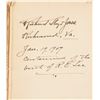 Richmond, Va.
Jan. 19, 1907
Centennial of the
birth of R. E. Lee